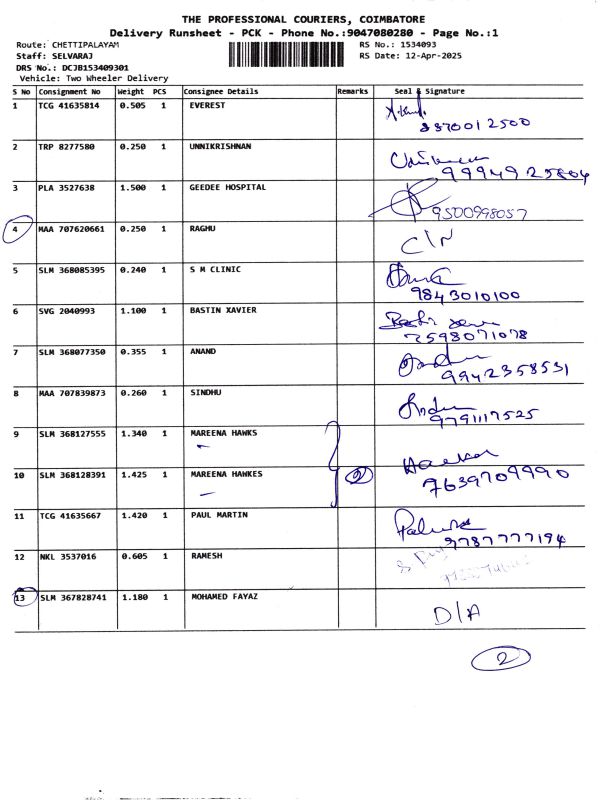 THE PROFESSIONAL COURIERS, COIMBATORE
Delivery Runsheet - PCK - Phone No.:9047080280 - Page No.:1
Route: CHETTIPALAYAM RS No.: 1534093
Staff: SELVARAJ RS Date: 12-Apr-2025
DRS No.: DCJB153409301
Vehicle: Two Wheeler Delivery
S No Consignment No Weight PCS Consignee Details Remarks Seal & Signature
1 TCG 41635814 0.505 1 EVEREST
8870012500
2 TRP 8277580 0.250 1 UNNIKRISHNAN
9994925804
3 PLA 3527638 1.500 1 GEEDEE HOSPITAL
9500998057
4 MAA 707620661 0.250 1 RAGHU
C/N
5 SLM 368085395 0.240 1 S M CLINIC
9843010100
6 SVG 2040993 1.100 1 BASTIN XAVIER
7598071078
7 SLM 368077350 0.355 1 ANAND
9942358531
8 MAA 707839873 0.260 1 SINDHU
9791117525
9 SLM 368127555 1.340 1 MAREENA HAWKS
10 SLM 368128391 1.425 1 MAREENA HAWKES 2
7639709990
11 TCG 41635667 1.420 1 PAUL MARTIN
9787777194
12 NKL 3537016 0.605 1 RAMESH
13 SLM 367828741 1.180 1 MOHAMED FAYAZ
D/A
2